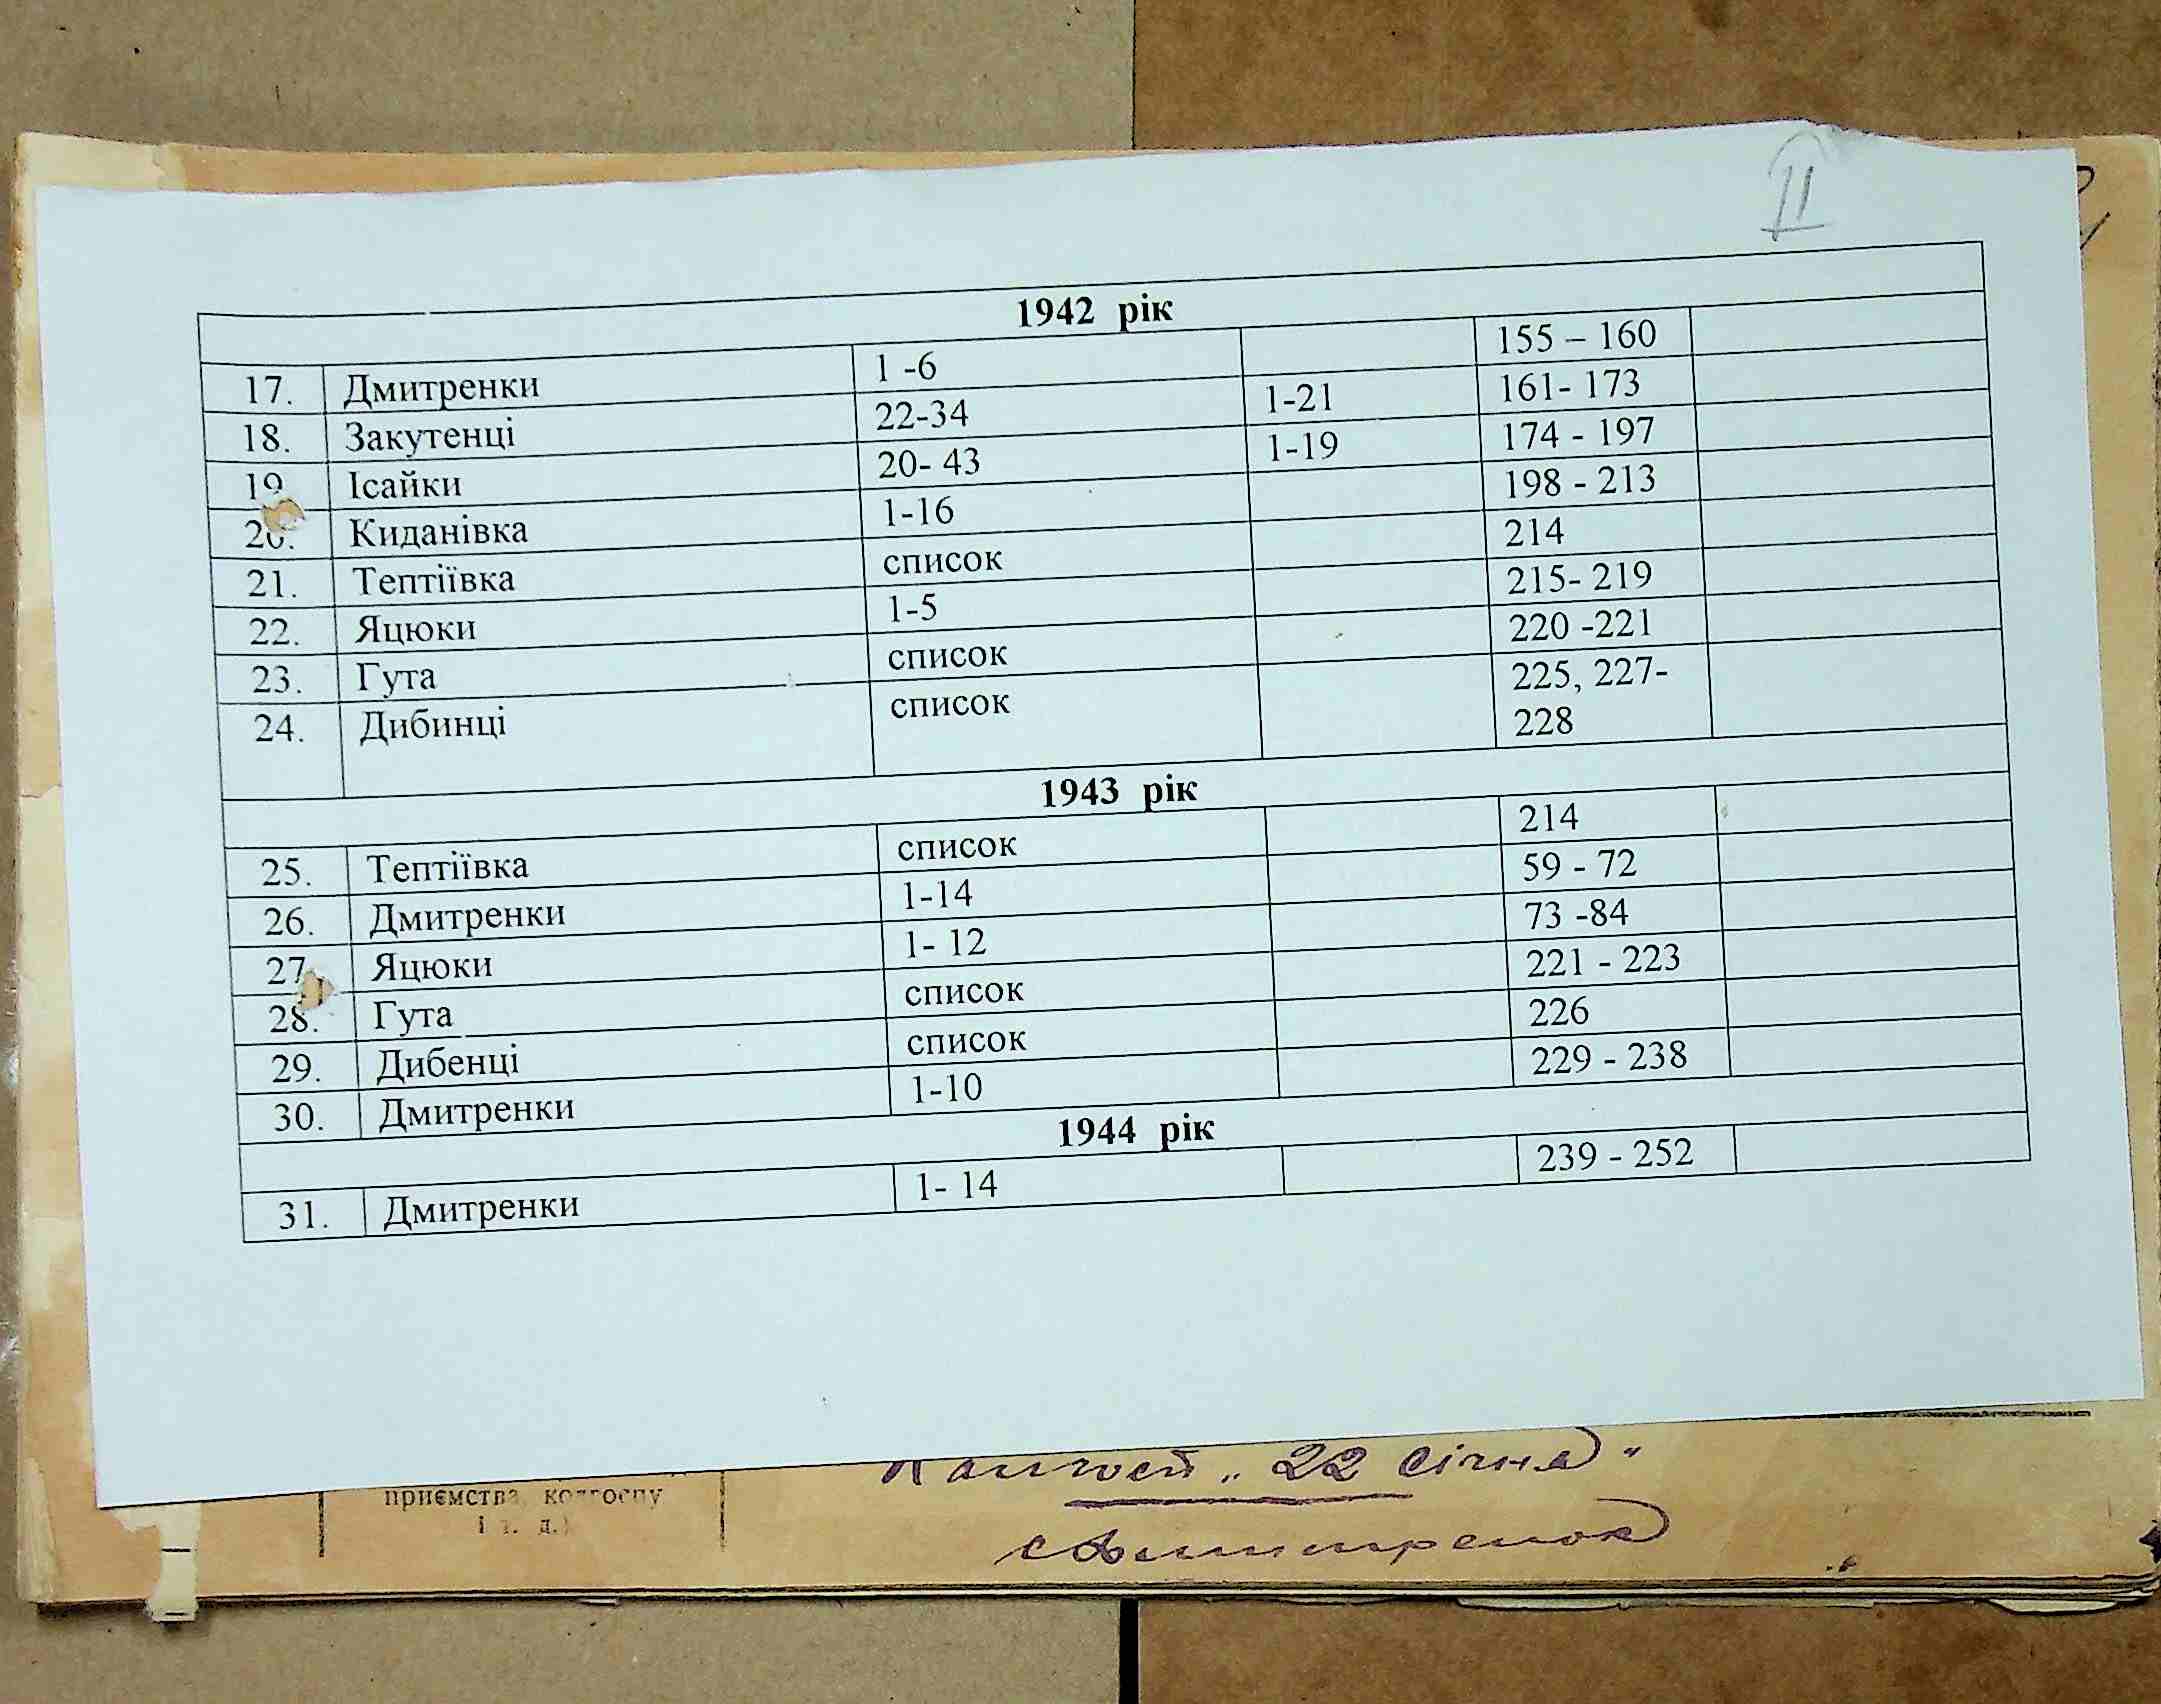 II
1942 рік
17. Дмитренки 1 -6 155 – 160
18. Закутенці 22-34 1-21 161- 173
19. Ісайки 20- 43 1-19 174 - 197
20. Киданівка 1-16 198 - 213
21. Тептіївка список 214
22. Яцюки 1-5 215- 219
23. Гута список 220 -221
24. Дибинці список 225, 227-
228
1943 рік
25. Тептіївка список 214
26. Дмитренки 1-14 59 - 72
27. Яцюки 1- 12 73 -84
28. Гута список 221 - 223
29. Дибенці список 226
30. Дмитренки 1-10 229 - 238
1944 рік
31. Дмитренки 1- 14 239 - 252
„ 22 Січня "
приємства, колгоспу
і т. д.)